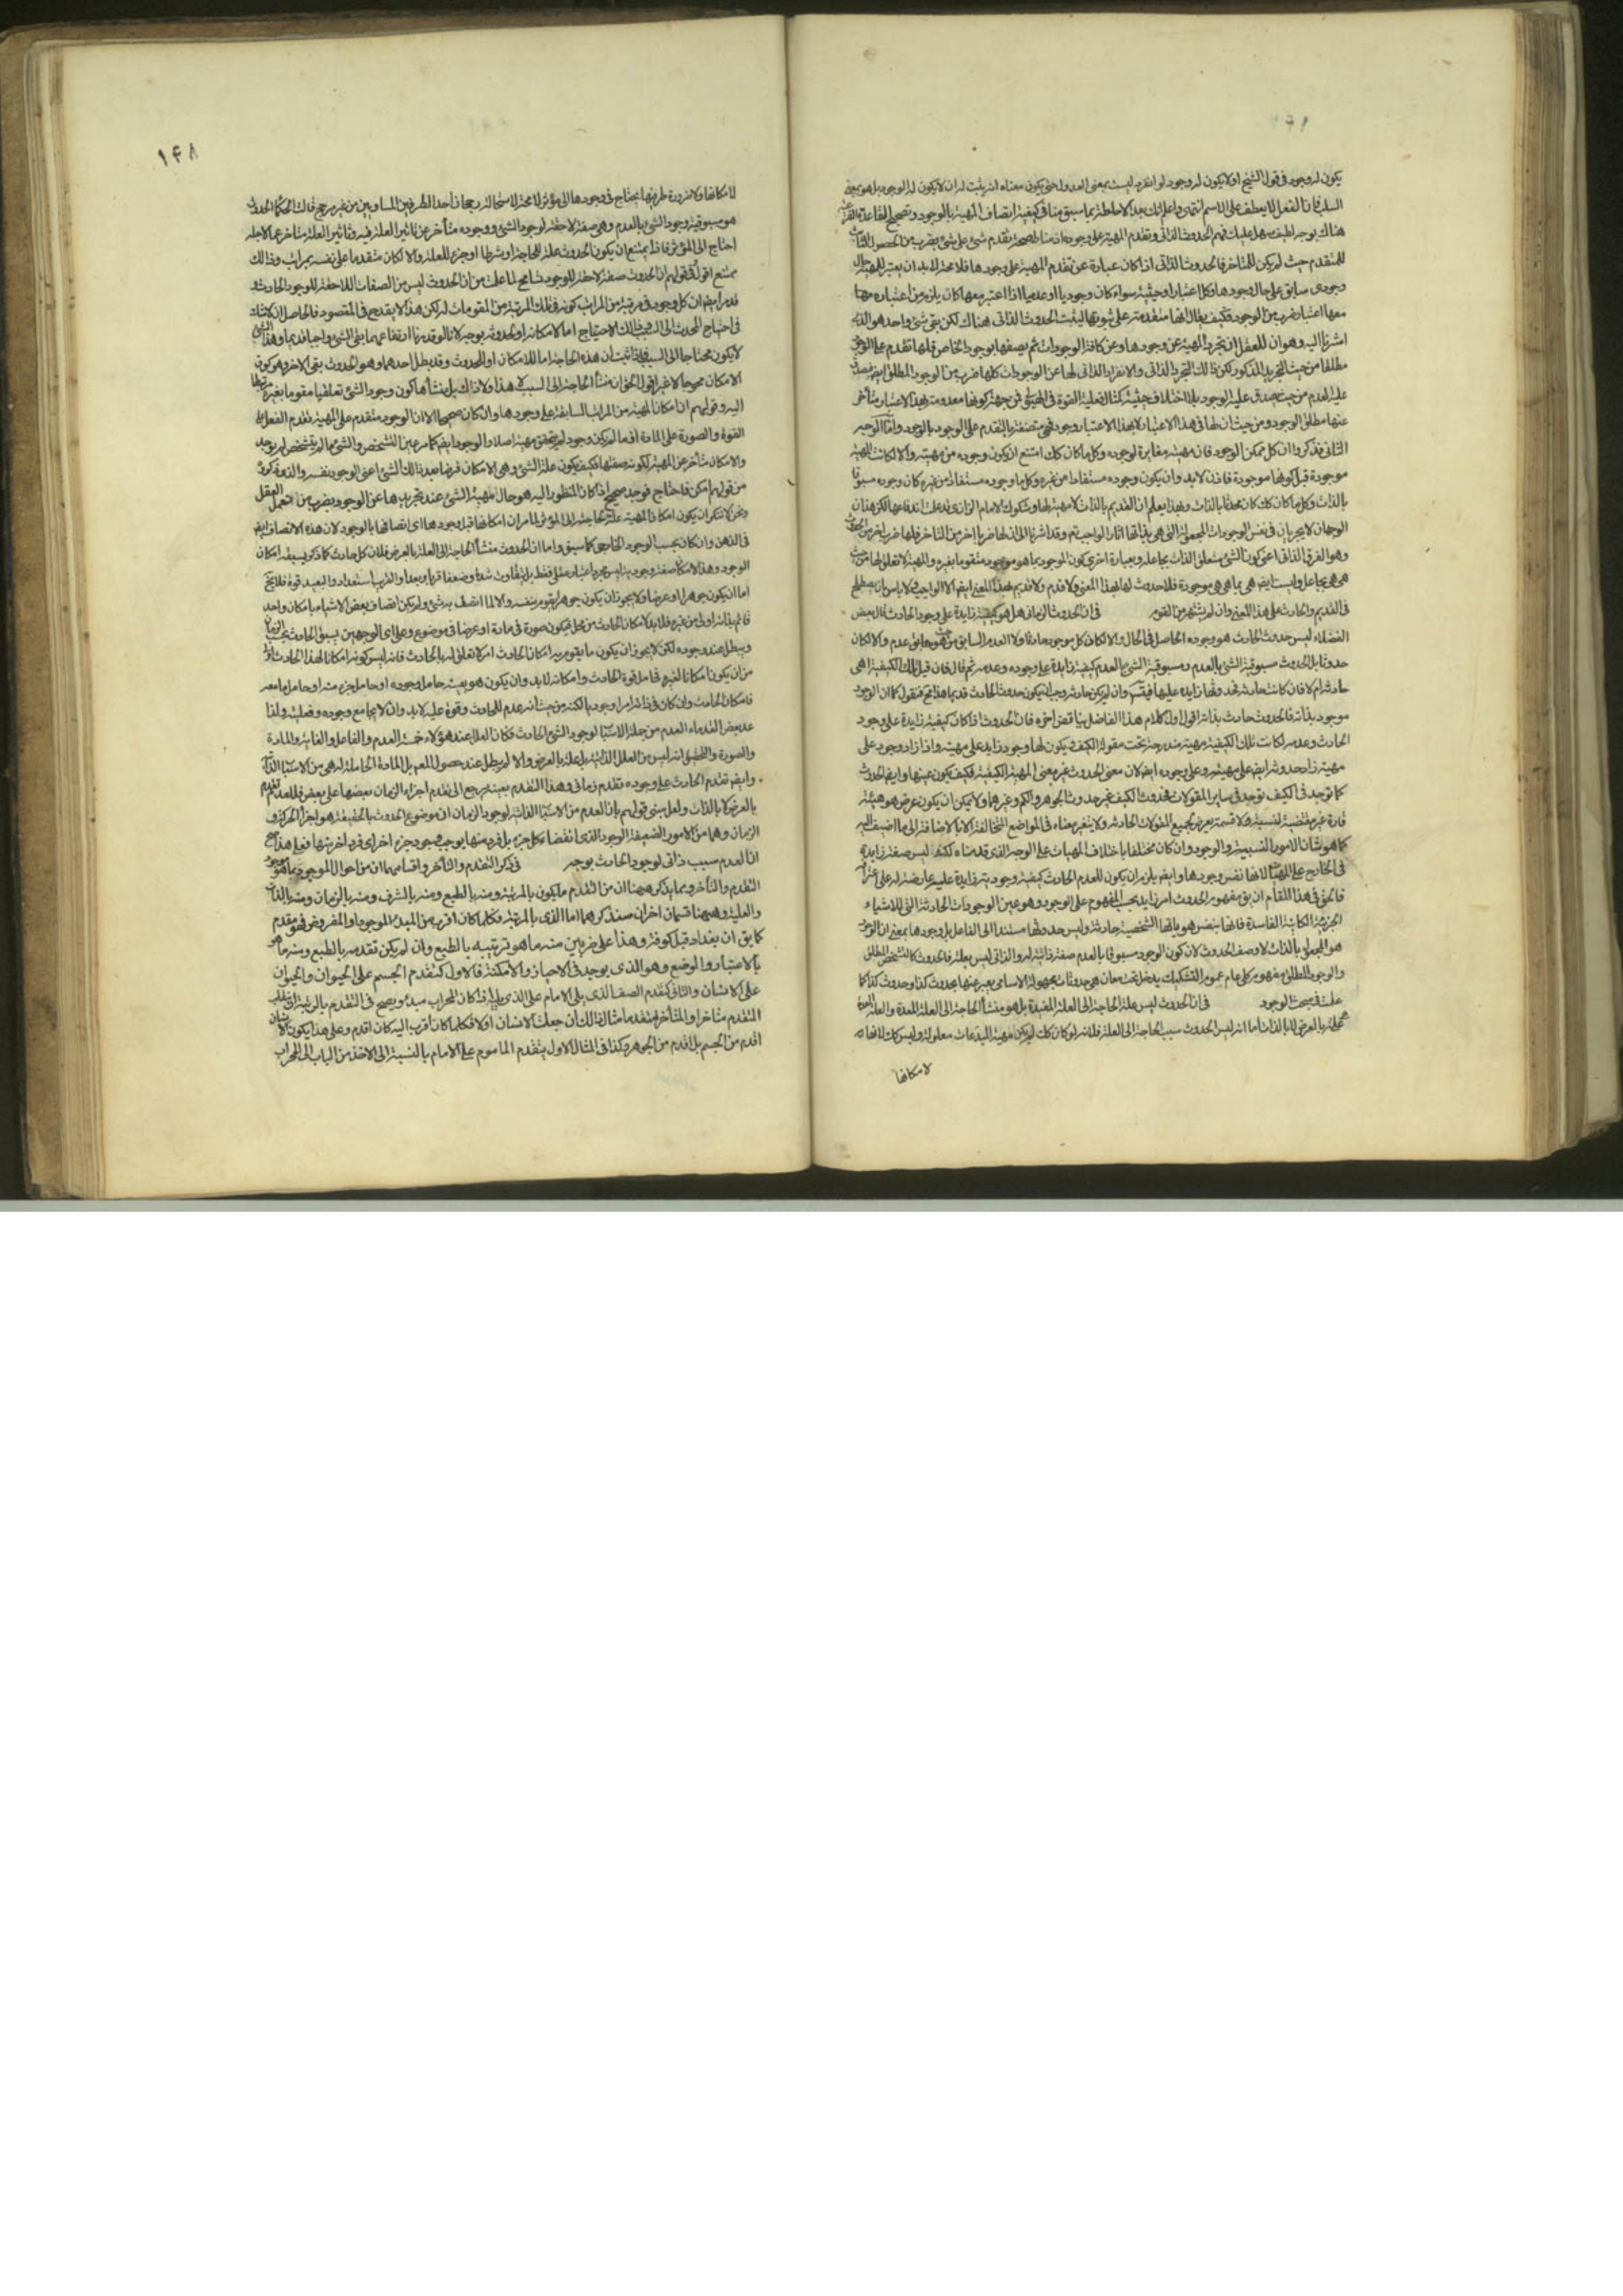 يكون له وجود في قول الشيخ او لا يكون له وجود لو انفرد ليست بمعنى العدول حتى يكون معناه انه يثبت له ان لا يكون له الوجود بل هو بمعنى
السلب فانا الفعل لا يعطف على الاسم انتهى واعلم انك بعد الاحاطة بما سبق منا في كيفية اتصاف المهية بالوجود وتصحيح القاعدة
هناك بوجه لطيف سهل عليك فهم الحدوث الذاتي وتقدم المهية على وجودها اذ مناط صحة تقدم شئ على شئ بضرب من الحصول
للمتقدم حيث لم يكن للمتاخر فالحدوث الذاتي اذا كان عبارة عن تقدم المهية على وجودها فلا محة لا بد ان يعتبر للمهية حال
وجودى سابق على حال وجودها وكل اعتبار او حيثية سواء كان وجوديا او عدميا اذا اعتبر معها كان يلزم من اعتباره معها
معها اعتبار ضرب من الوجود فكيف يقال انها متقدمة على ثبوتها ليثبت الحدوث الذاتى هناك لكن بقى شئ واحد هو الذى
اشرنا اليه وهو ان للعقل ان يجرد المهية عن وجودها وعن كافة الوجودات ثم يصفها بوجودها الخاص فلها تقدم على الوجود
مطلقا من حيث التجريد المذكور لكن ذالك التجرد الذاتى والانفراد الذاتى لها عن الوجودات كلها ضرب من الوجود المطلق
عليه العدم من حيث صدق عليه الوجود بلا اختلاف حيثية كمثال فعلية القوة في الهيولى فمن جهة كونها معدومة بهذا الاعتبار متأخر
عنها مطلق الوجود ومن حيث ان لها في هذا الاعتبار لا بهذا الاعتبار وجود فهى متصفة بالتقدم على الوجود بالوجود واما الوجه
الثانى فذكروا ان كل ممكن الوجود فان مهيته مغايرة لوجوده وكل ما كان كك امتنع ان يكون وجوده من مهيته والا لكانت المهية
موجودة قبل كونها موجودة فاذن لا بد وان يكون وجوده مستفادا من غيره وكل ما وجوده مستفاد من غيره كان وجوده مسبوقا
بالذات وكل ما كان كك كان محدثا بالذات وبهذا يعلم ان القديم بالذات لا مهية لها وشكوك الامام الرازى قد علمت اندفاعها لكن هذان
الوجهان لا يجريان في نفس الوجودات المجعولة التى هى بذاتها اثار الواجب تعم وقد اشرنا الى ان لها ضربا اخر من التاخر فلها ضرب اخر من الحدوث
وهو الفقر الذاتى اعنى كون الشئ متعلق الذات بجاعله وبعبارة اخرى كون الموجود بما هو موجود متقوما بغيره والمهية لا تعلق لها من حيث
هى هى بجاعل وليست ايضا هى بما هى هى موجودة فلا حدوث لها بهذا المعنى ولا قدم ولا قديم بهذا المعنى ايضا الا الواجب ولا باس بان يصطلح
في القديم والحادث على هذا المعنى وان لم يشتهر من القوم في ان الحدوث الزمانى هل هو كيفية زايدة على وجود الحادث قال بعض
الفضلاء ليس حدوث الحادث هو وجوده الحاصل في الحال والا لكان كل موجود حادثا ولا العدم السابق من حيث هو عدم والا لكان
حدوثا بل الحدوث مسبوقية الشئ بالعدم ومسبوقية الشئ بالعدم كيفية زايدة على وجوده وعدمه ثم قال فان قيل تلك الكيفية اهى
حادثه ام لا فان كانت حادثه فحدوثها زايد عليها فيتسلسل وان لم يكن حادثه وجب ان يكون حدوث الحادث قديما هذا مح فنقول كما ان الوجود
موجود بذاته فالحدوث حادث بذاته اقول اول كلام هذا الفاضل يناقض اخره فان الحدوث اذا كان كيفية زايدة على وجود
الحادث وعدمه لكانت تلك الكيفية مهية مندرجة تحت مقولة الكيف ويكون لها وجود زايد على مهيته واذا زاد وجود على
مهيته زاد حدوثه ايضا على مهيته وعلى وجوده ايضا لان معنى الحدوث غير معنى المهية الكيفية فكيف يكون عينها وايضا الحدوث
كما توجد في الكيف توجد في ساير المقولات فحدوث الكيف غير حدوث الجوهر والكم وغيرهما ولا يمكن ان يكون عرض هو هيئة
قارة غير مقتضية لنسبة ولا قسمة يعرض لجميع المقولات الحادثه ولا يتغير معناه في المواضع المتخالفة الا بالاضافة الى ما اضيف اليه
كما هو شان الامور النسبية والوجود وان كان مختلفا باختلاف المهيات على الوجه الذى قدمناه لكنه ليس صفة زايدة
في الخارج على المهيات لانها نفس وجودها وايضا يلزم ان يكون للعدم الحادث كيفية وجودية زايدة عليه عارضة له
فالحق في هذا المقام ان يق مفهوم الحدوث امر زايد بحسب المفهوم على الوجود وهو عين الوجودات الحادثة التى للاشياء
الجزئية الكاينة الفاسدة فانها بنفس هوياتها الشخصية حادثة وليس حدوثها مستندا الى الفاعل بل وجودها بمعنى ان الوجود
هو المجعول بالذات لا وصف الحدوث لان كون الوجود مسبوقا بالعدم صفة ذاتية له والذاتى ليس بعلة فالحدوث كالتشخص المطلق
والوجود المطلق مفهوم كلى عام عموم التشكيك يدخل تحته معان هى حدوثات مجهولة الاسامى يعبر عنها بحدوث كذا وحدوث كذا كما
علمت في مبحث الوجود في ان الحدوث ليس علة الحاجة الى العلة المفيدة بل هو منشأ الحاجة الى العلة المعدة والعلة
هى علة بالعرض لا بالذات اما انه ليس الحدوث سبب الحاجة الى العلة فلانه لو كان كك لم يكن مهية المبدعات معلولة وليس كك لانها
لامكانها
١٤٨
لامكانها ولا ضرورة طرفيها يحتاج في وجودها الى مؤثر لا محة لاستحالة رجحان احد الطرفين المساويين من غير مرجح قالت الحكما الحدوث
هو مسبوقية وجود الشئ بالعدم وهى صفة لاحقة لوجود الشئ ووجوده متأخر عن تاثير العلة فيه وتاثير العلة متاخر عما لاجله
احتاج الى المؤثر فاذا يمتنع ان يكون الحدوث علة للحاجة او شرطا او جزء للعلة والا لكان متقدما على نفسه بمراتب وذالك
ممتنع اقول في قولهم ان الحدوث صفة لاحقة للوجود تسامح لما علمت من ان الحدوث ليس من الصفات اللاحقة للوجود الحادث و
قد مر ايضا ان كل وجود في مرتبة من المراتب كونه في تلك المرتبة من المقومات له لكن هذا لا يقدح في المقصود فالحاصل ان لا شك
في احتياج المحدث الى السبب وذلك الاحتياج اما لامكانه او لحدوثه بوجه لانا لو قدرنا ارتفاعهما بقى الشئ واجبا قديما وهذا الشئ
لا يكون محتاجا الى السبب فاذا ثبت ان هذه الحاجة اما للامكان او للحدوث وقد بطل احدهما وهو الحدوث بقى الاخر وهو كون
الامكان محوجا لا غير اقول الحق ان منشأ الحاجة الى السبب لا هذا ولا ذاك بل منشأها كون وجود الشئ تعلقيا متقوما بغيره مرتبطا
اليه وقولهم ان امكان المهية من المراتب السابقة على وجودها وان كان صحيحا الا ان الوجود متقدم على المهية تقدم الفعل على
القوة والصورة على المادة اذ ما لم يكن وجود لم يتحقق مهية اصلا والوجود ايضا كما مر عين التشخص والشئ ما لم يتشخص لم يوجد
والامكان متأخر عن المهية لكونه صفتها فكيف يكون علة الشئ وهى الامكان فرضا بعد ذالك الشئ اعنى الوجود نفسه والذى ذكروه
من قولهم امكن فاحتاج فوجد صحيح اذا كان المنظور اليه هو حال مهية الشئ عند تجريدها عن الوجود بضرب من تعمل العقل
ونحن لا ننكر ان يكون امكان المهية علة لحاجتها الى المؤثر لما مر ان امكانها قبل وجودها اى اتصافها بالوجود لان هذه الاتصاف ايضا
في الذهن وان كان بحسب الوجود الخارجى كما سبق واما ان الحدوث منشأ الحاجة الى العلة بالعرض فلان كل حادث كما ذكر يسبقه امكان
الوجود وهذا الامكان صفة وجودية ليس مجرد اعتبار عقلى فقط بل يتفاوت شدة وضعفا قربا وبعدا والقريب استعداد والبعيد قوة فلا يخ
اما ان يكون جوهرا او عرضا ولا يجوز ان يكون جوهرا يقوم بنفسه والا لما اتصف به شئ ولم يكن اتصاف بعض الاشياء بامكان واحد
قائم بذاته اولى من غيره فلا بد لامكان الحادث من محل فيكون صورة في مادة او عرضا في موضوع وعلى اى الوجهين يسبق الحادث بحسب الزمان
ويبطل عند وجوده لكن لا يجوز ان يكون ما يقوم به امكان الحادث امرا لا تعلق له بالحادث فانه ليس كونه امكانا لهذا الحادث اولى
من ان يكون امكانا لغيره فحامل قوة الحادث وامكانه لا بد وان يكون هو بعينه حامل وجوده او حامل جزء منه او حامل ما معه
فامكان الحادث وان كان في ذاته امرا وجوديا لكنه من حيث انه عدم للحادث وقوة عليه لا بد وان لا يجامع وجوده وفعليته ولذا
عد بعض القدماء العدم من جملة الاسباب لوجود الشئ الحادث فكان العلل عند هؤلاء خمسة العدم والفاعل والغاية والمادة
والصورة والتحقيق انه ليس من العلل الذاتية بل علة بالعرض والا لم يبطل عند حصول المعلول بل المادة الحاملة له هى من الاسباب الذاتية
وايضا تقدم الحادث على وجوده تقدم زمانى وهذا التقدم بعينه يرجع الى تقدم اجزاء الزمان بعضها على بعض فللعدم تقدم
بالعرض لا بالذات ولعل مبنى قولهم بان العدم من الاسباب الذاتية لوجود الزمان ان موضوع الحدوث بالحقيقة هو اجزاء الحركة و
الزمان وهما من الامور الضعيفة الوجود الذى انقضاء كل جزء بل فرد منها يوجب وجود جزء اخر اى فرد اخر منها فعلى هذا صح
ان العدم سبب ذاتى لوجود الحادث بوجه في ذكر التقدم والتأخر واقسامهما ان من احوال الموجود بما هو موجود
التقدم والتأخر ومما يذكر ههنا ان من التقدم ما يكون بالمرتبة ومنه بالطبع ومنه بالشرف ومنه بالزمان ومنه بالذات
والعلية وههنا قسمان اخران سنذكرهما اما الذى بالمرتبة فكلما كان اقرب من المبدء الموجود او المفروض فهو مقدم
كما يق ان بغداد قبل كوفة وهذا على ضربين منه ما هو ترتيبه بالطبع وان لم يكن تقدمه بالطبع ومنه ما هو
بالاعتبار والوضع وهو الذى يوجد في الاحياز والامكنة فالاول كتقدم الجسم على الحيوان والحيوان
على الانسان والثانى كتقدم الصف الذى يلى الامام على الذى يليه اذا كان المحراب مبدء ويصح في التقدم بالرتبة ان ينقلب
المتقدم متاخرا والمتأخر متقدما مثال ذالك ان جعلت الانسان اولا فكلما كان اقرب اليه كان اقدم وعلى هذا يكون الانسان
اقدم من الجسم بل اقدم من الجوهر وكذا في المثال الاول يتقدم الماموم على الامام بالنسبة الى الاخذ من الباب الى المحراب